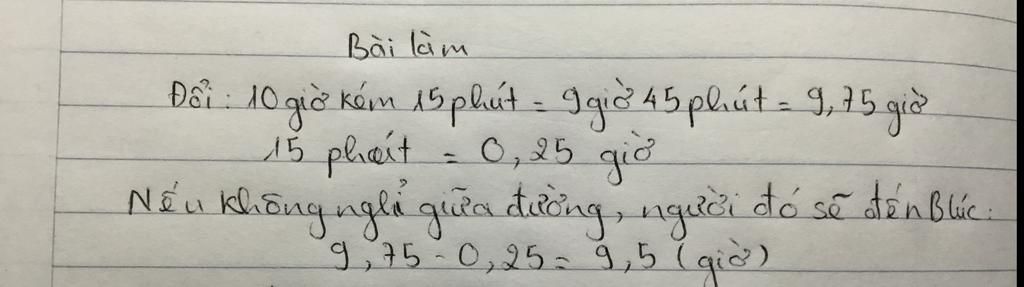 Bài làm
Đổi: 10 giờ kém 15 phút = 9 giờ 45 phút = 9,75 giờ
15 phút = 0,25 giờ
Nếu không nghỉ giữa đường, người đó sẽ đến B lúc:
9,75 - 0,25 = 9,5 (giờ)